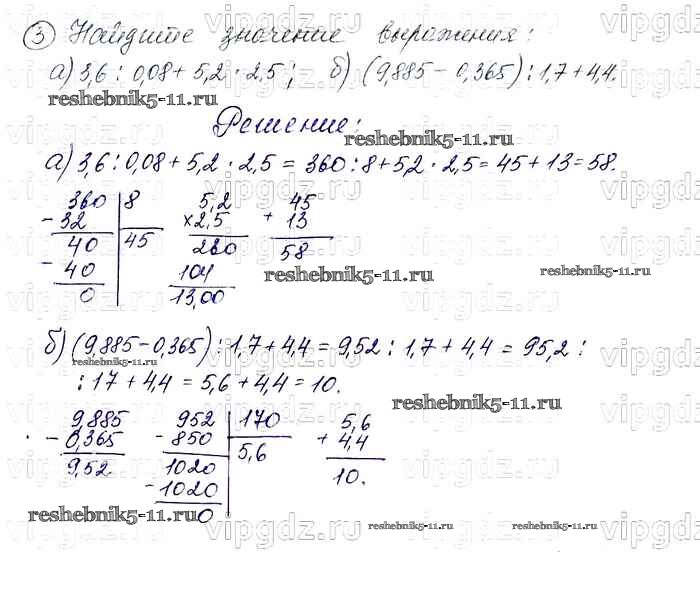 ③ Найдите значение выражения:
а) 3,6 : 0,08 + 5,2 · 2,5; б) (9,885 - 0,365) : 1,7 + 4,4.
reshebnik5-11.ru
Решение:
reshebnik5-11.ru
а) 3,6 : 0,08 + 5,2 · 2,5 = 360 : 8 + 5,2 · 2,5 = 45 + 13 = 58.
360 8 5,2 45
- 32 45 × 2,5 + 13
40 260 58
- 40 104
0 13,00
reshebnik5-11.ru
reshebnik5-11.ru
б) (9,885 - 0,365) : 1,7 + 4,4 = 9,52 : 1,7 + 4,4 = 95,2 :
reshebnik5-11.ru
: 17 + 4,4 = 5,6 + 4,4 = 10.
reshebnik5-11.ru
9,885 952 170 5,6
- 0,365 - 850 5,6 + 4,4
9,52 1020 10.
- 1020
0
reshebnik5-11.ru
reshebnik5-11.ru
reshebnik5-11.ru
vipgdz.ru